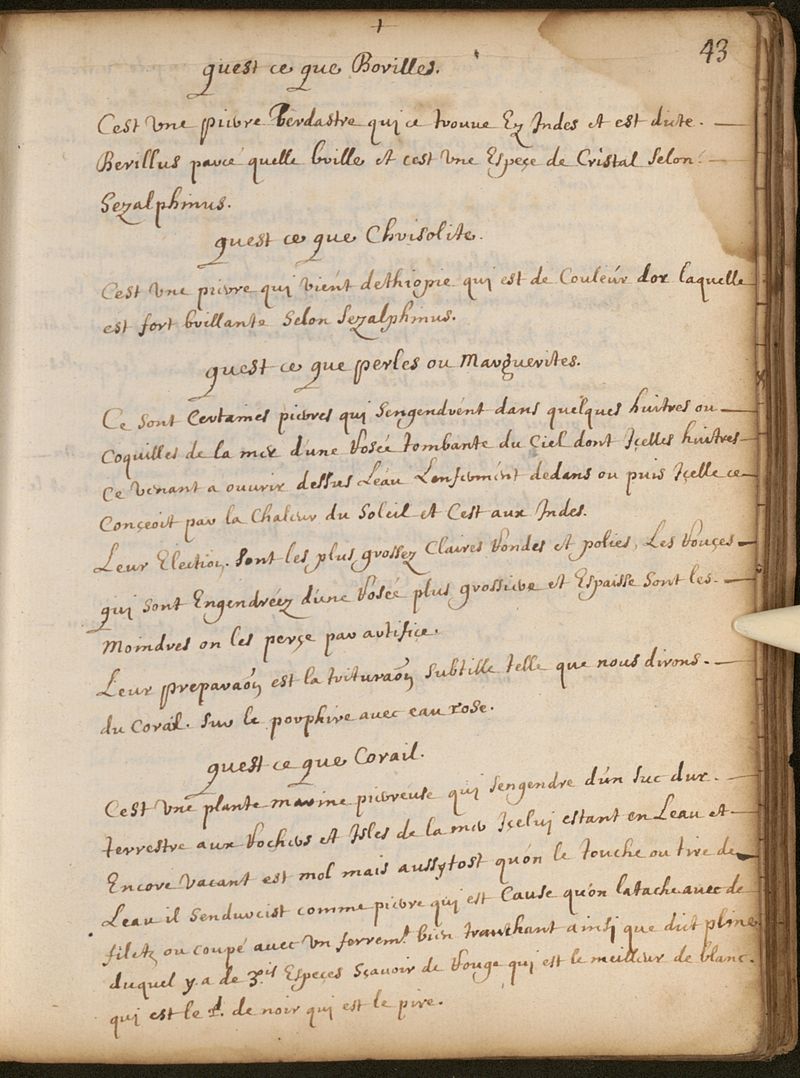 +
43
quest ce que Borilles.
Cest vne pierre Verdastre qui ce trouue Ez Indes et est dicte. —
Berillus parce quelle brille et cest vne Espeçe de Cristal selon —
Sezalphinus.
quest ce que Chrisolite.
Cest vne pierre qui vient dethiopie qui est de Couleur dor laquelle
est fort brillante selon Sezalphinus.
quest ce que perles ou Marguerites.
Ce sont Certaines pierres qui sengendrent dans quelques huitres ou —
coquilles de la mer d'une Rosée tombante du Ciel dont Içelles huitres —
ce venant a ouurir dessus Leau Lenferment dedans ou puis Içelle ce —
Conçeoit par la Chaleur du Soleil et Cest aux Indes.
Leur Election. sont les plus grossez Claires Rondes et polies, Les Rouçes —
qui sont Engendréez d'une Rosée plus grossiere et Espaisse sont les. —
Moindres on les perçe par artifice.
Leur preparaõn est la trituraõn subtille telle que nous dirons. —
du Coral. sur le porphire auec eau rose.
quest ce que Corail.
Cest vne plante marine pierreuse qui sengendre d'un suc dur. —
terrestre aux Rochers et Isles de la mer Içeluj estant en Leau et —
Encore vacant est mol mais aussytost qu'on le touche ou tire de —
Leau il sendurcist comme pierre qui est Cause qu'on latache auec de
filetz ou coupé auec vn ferremt. bien tranchant ainsj que dict pline
duquel y a de 3is Especes Sçavoir de Rouge qui est le meilleur de blanc.
qui est le 2d. de noir qui est le pire.